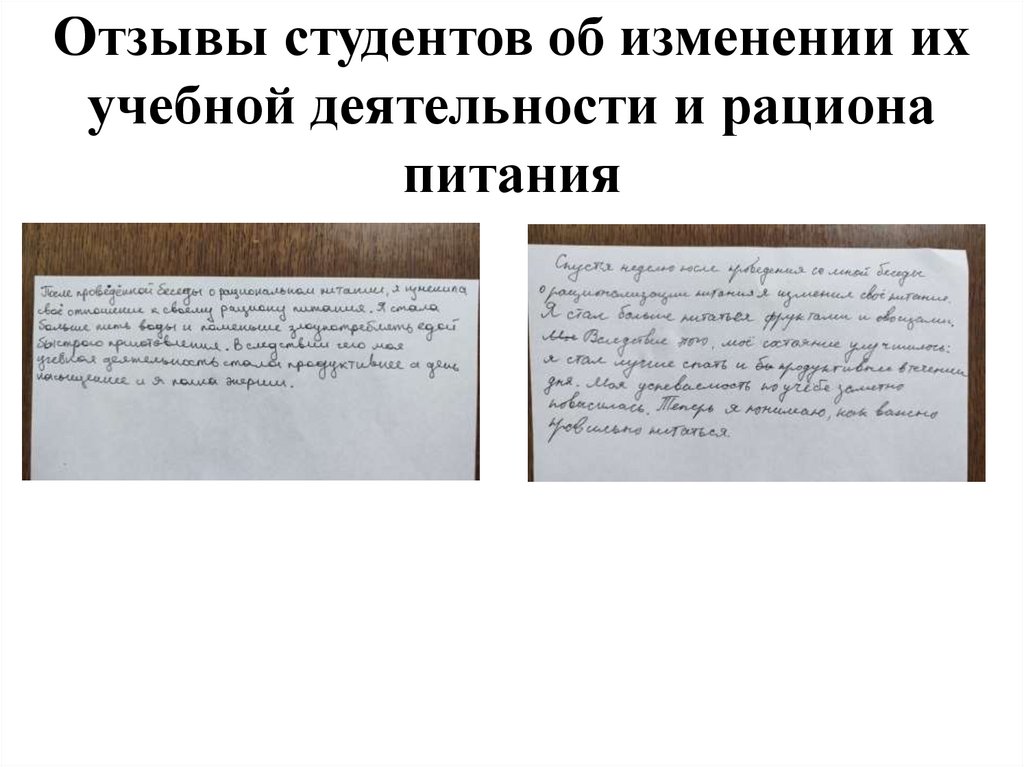 Отзывы студентов об изменении их
учебной деятельности и рациона
питания
После проведённой беседы о рациональном питании, я изменила
своё отношение к своему рациону питания. Я стала
больше пить воды и поменьше злоупотреблять едой
быстрого приготовления. В следствии чего моя
учебная деятельность стала продуктивнее а день
насыщеннее и я полна энергии.
Спустя неделю после проведения со мной беседы
о рационализации питания я изменил своё питание.
Я стал больше питаться фруктами и овощами.
Вследствие того, моё состояние улучшилось:
я стал лучше спать и продуктивнее в течении
дня. Моя успеваемость по учёбе заметно
повысилась. Теперь я понимаю, как важно
правильно питаться.